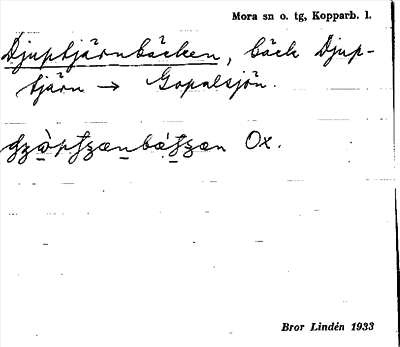 Mora sn o. tg, Kopparb. l.
Djuptjärnbäcken, bäck Djup-
tjärn → Gopalsjön.
Ox.
Bror Lindén 1933